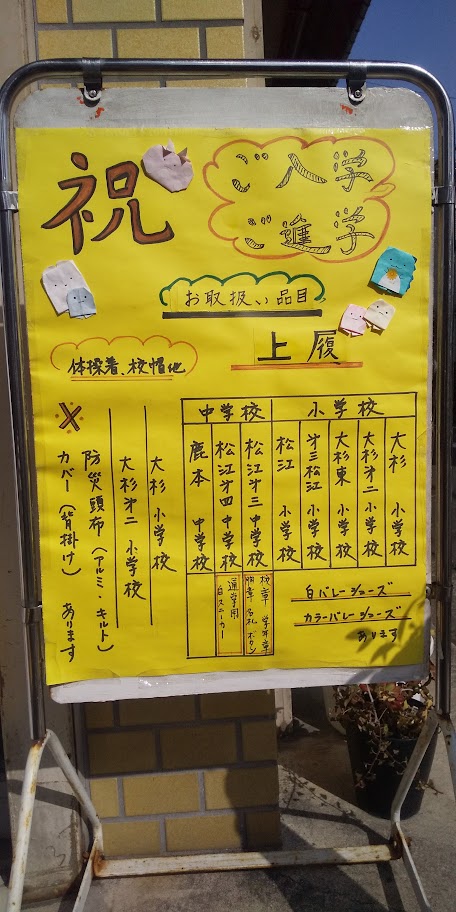 祝
ご入学
ご進学
お取扱い品目
上履
体操着、校帽他
小学校
大杉 小学校
大杉第二 小学校
大杉東 小学校
第三松江 小学校
松江 小学校
中学校
松江第三 中学校
松江第四 中学校
鹿本 中学校
白バレーシューズ
カラーバレーシューズ
あります
校章 学年章
名札 ボタン
通学用
白スニーカー
大杉 小学校
大杉第二 小学校
防災頭布(アルミ・キルト)
カバー(背掛け) あります